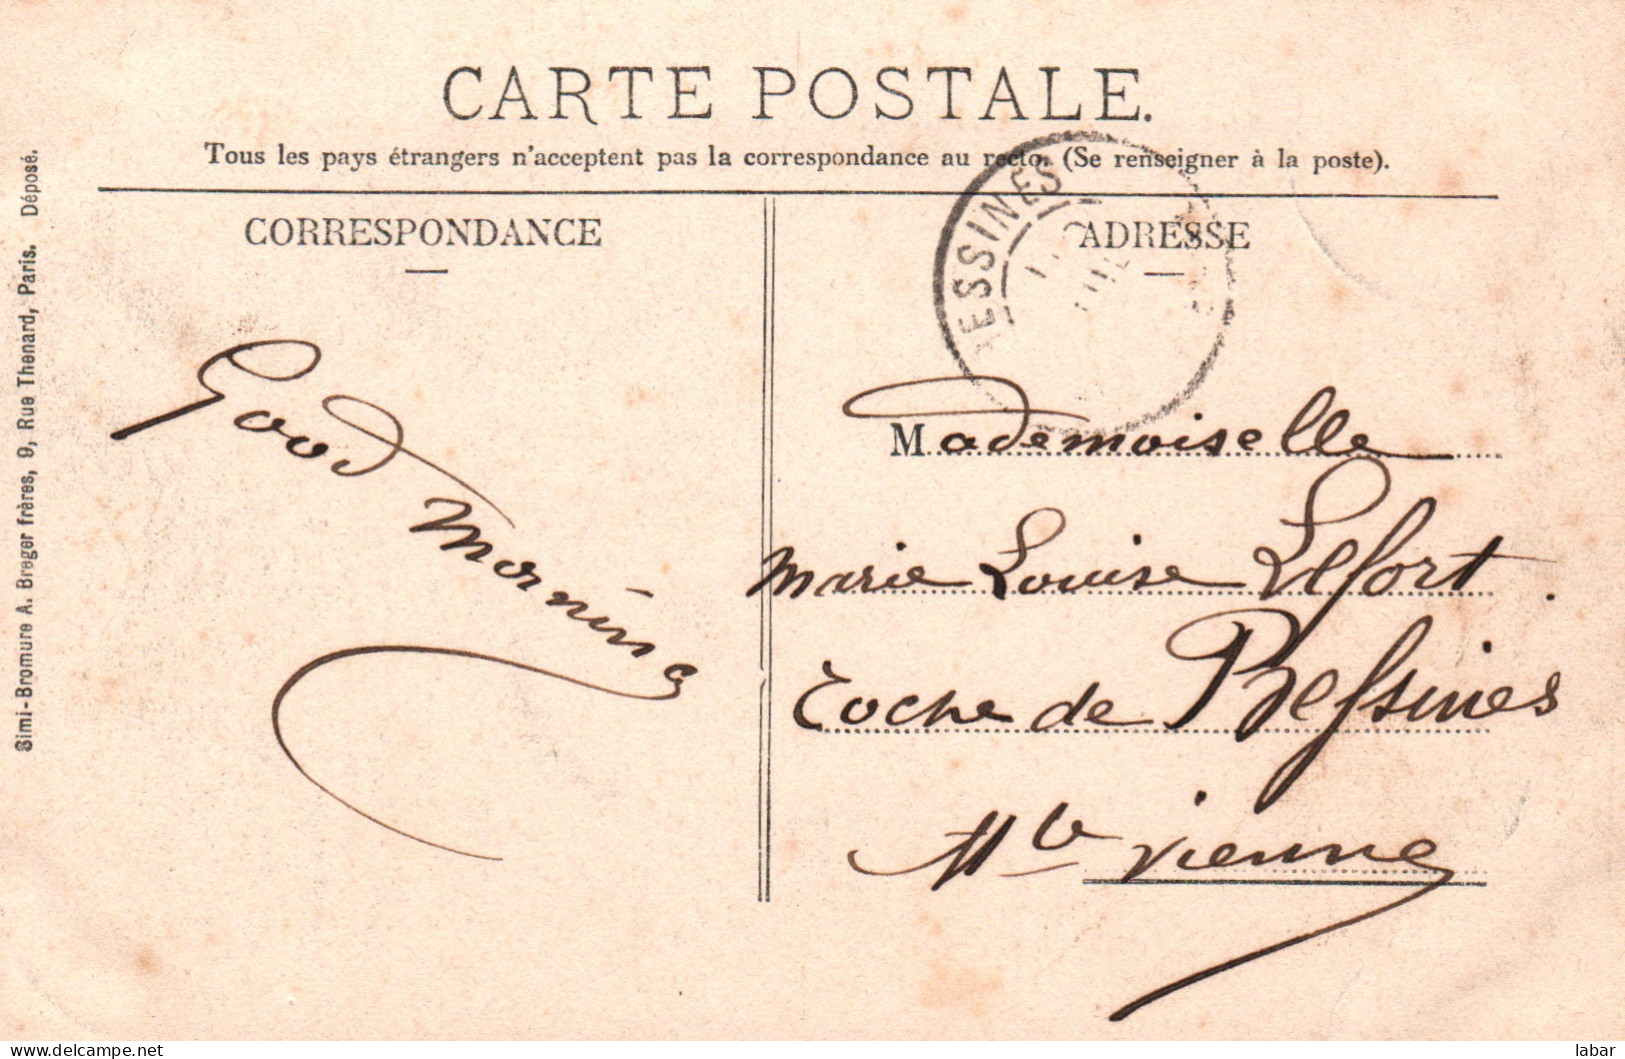 CARTE POSTALE.
Tous les pays étrangers n'acceptent pas la correspondance au recto. (Se renseigner à la poste).
CORRESPONDANCE
ADRESSE
ESSINES
Good
morning
Mademoiselle
Marie Louise Lefort
roche de Bessines
Hte Vienne
Simi-Bromure A. Breger frères, 9, Rue Thenard, Paris. Déposé.
delcampe.net
labar